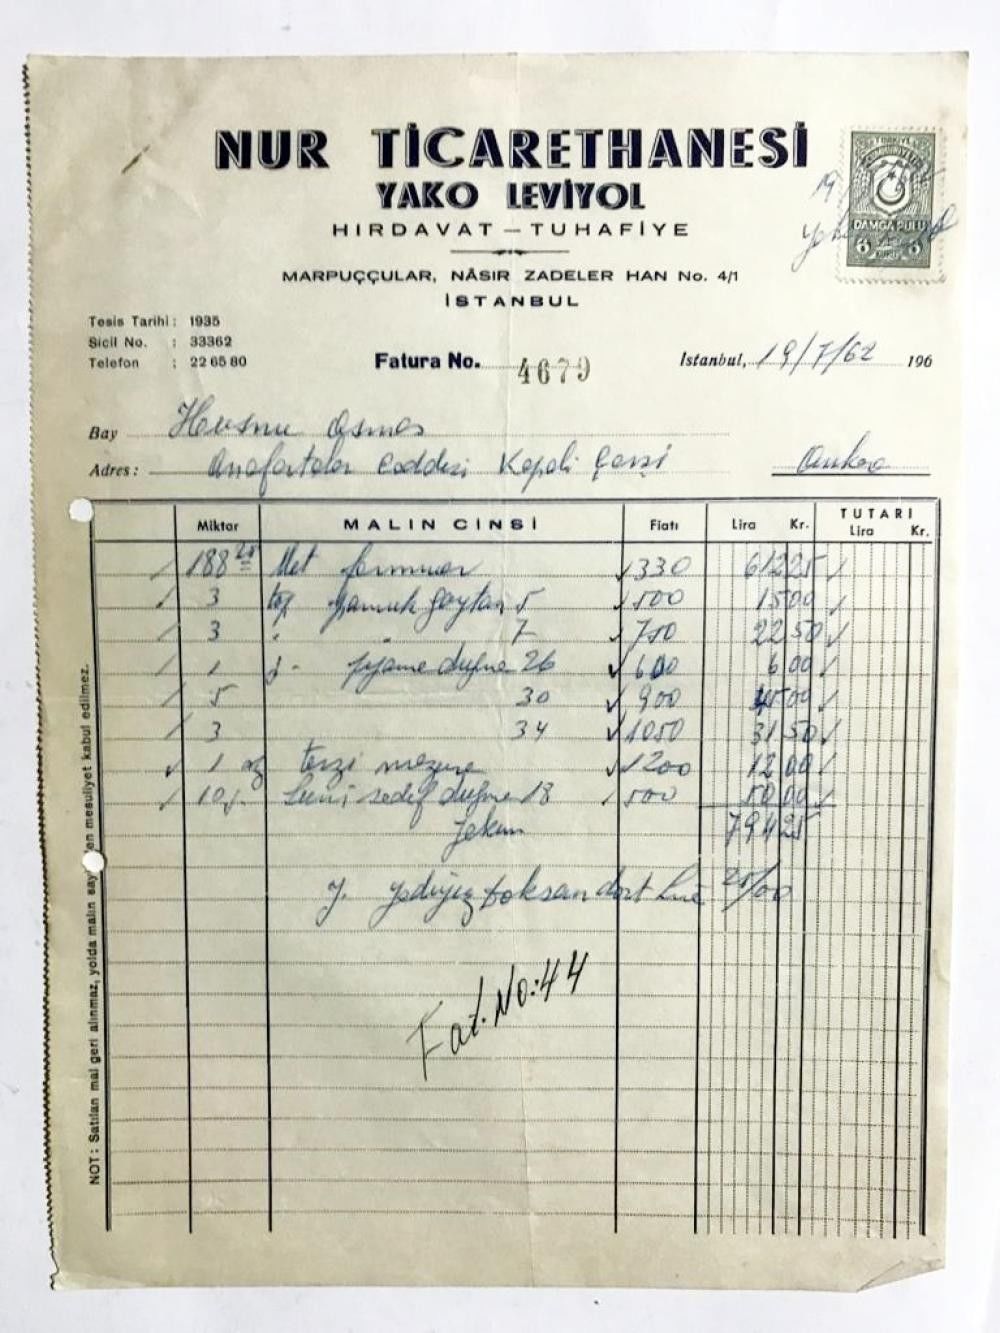 NUR TİCARETHANESİ
YAKO LEVİYOL
HIRDAVAT – TUHAFİYE
MARPUÇÇULAR, NÂSIR ZADELER HAN No. 4/1
İSTANBUL
DAMGA PULU
6 KURUŞ 6
19
Tesis Tarihi : 1935
Sicil No. : 33362
Telefon : 22 65 80
Fatura No. 4679
İstanbul, 19/7/62 196
Bay
Adres : Anafartalar Caddesi Kapali Çarşi Ankara
Miktar MALIN CİNSİ Fiatı Lira Kr. TUTARI Lira Kr.
188 25 Met 330 612 25
3 top Pamuk Gaytan 5 500 15 00
3 " " 7 750 22 50
1 g. Pijama duğme 26 600 6 00
5 30 900 45 00
3 34 1050 31 50
1 terzi mezure 1200 12 00
10 g. sedef duğme 18 500 50 00
Yekun 794 25
Y. yediyüz doksan dört Lira 25/00
Fat. No: 44
NOT : Satılan mal geri alınmaz, yolda malın en mesuliyet kabul edilmez.